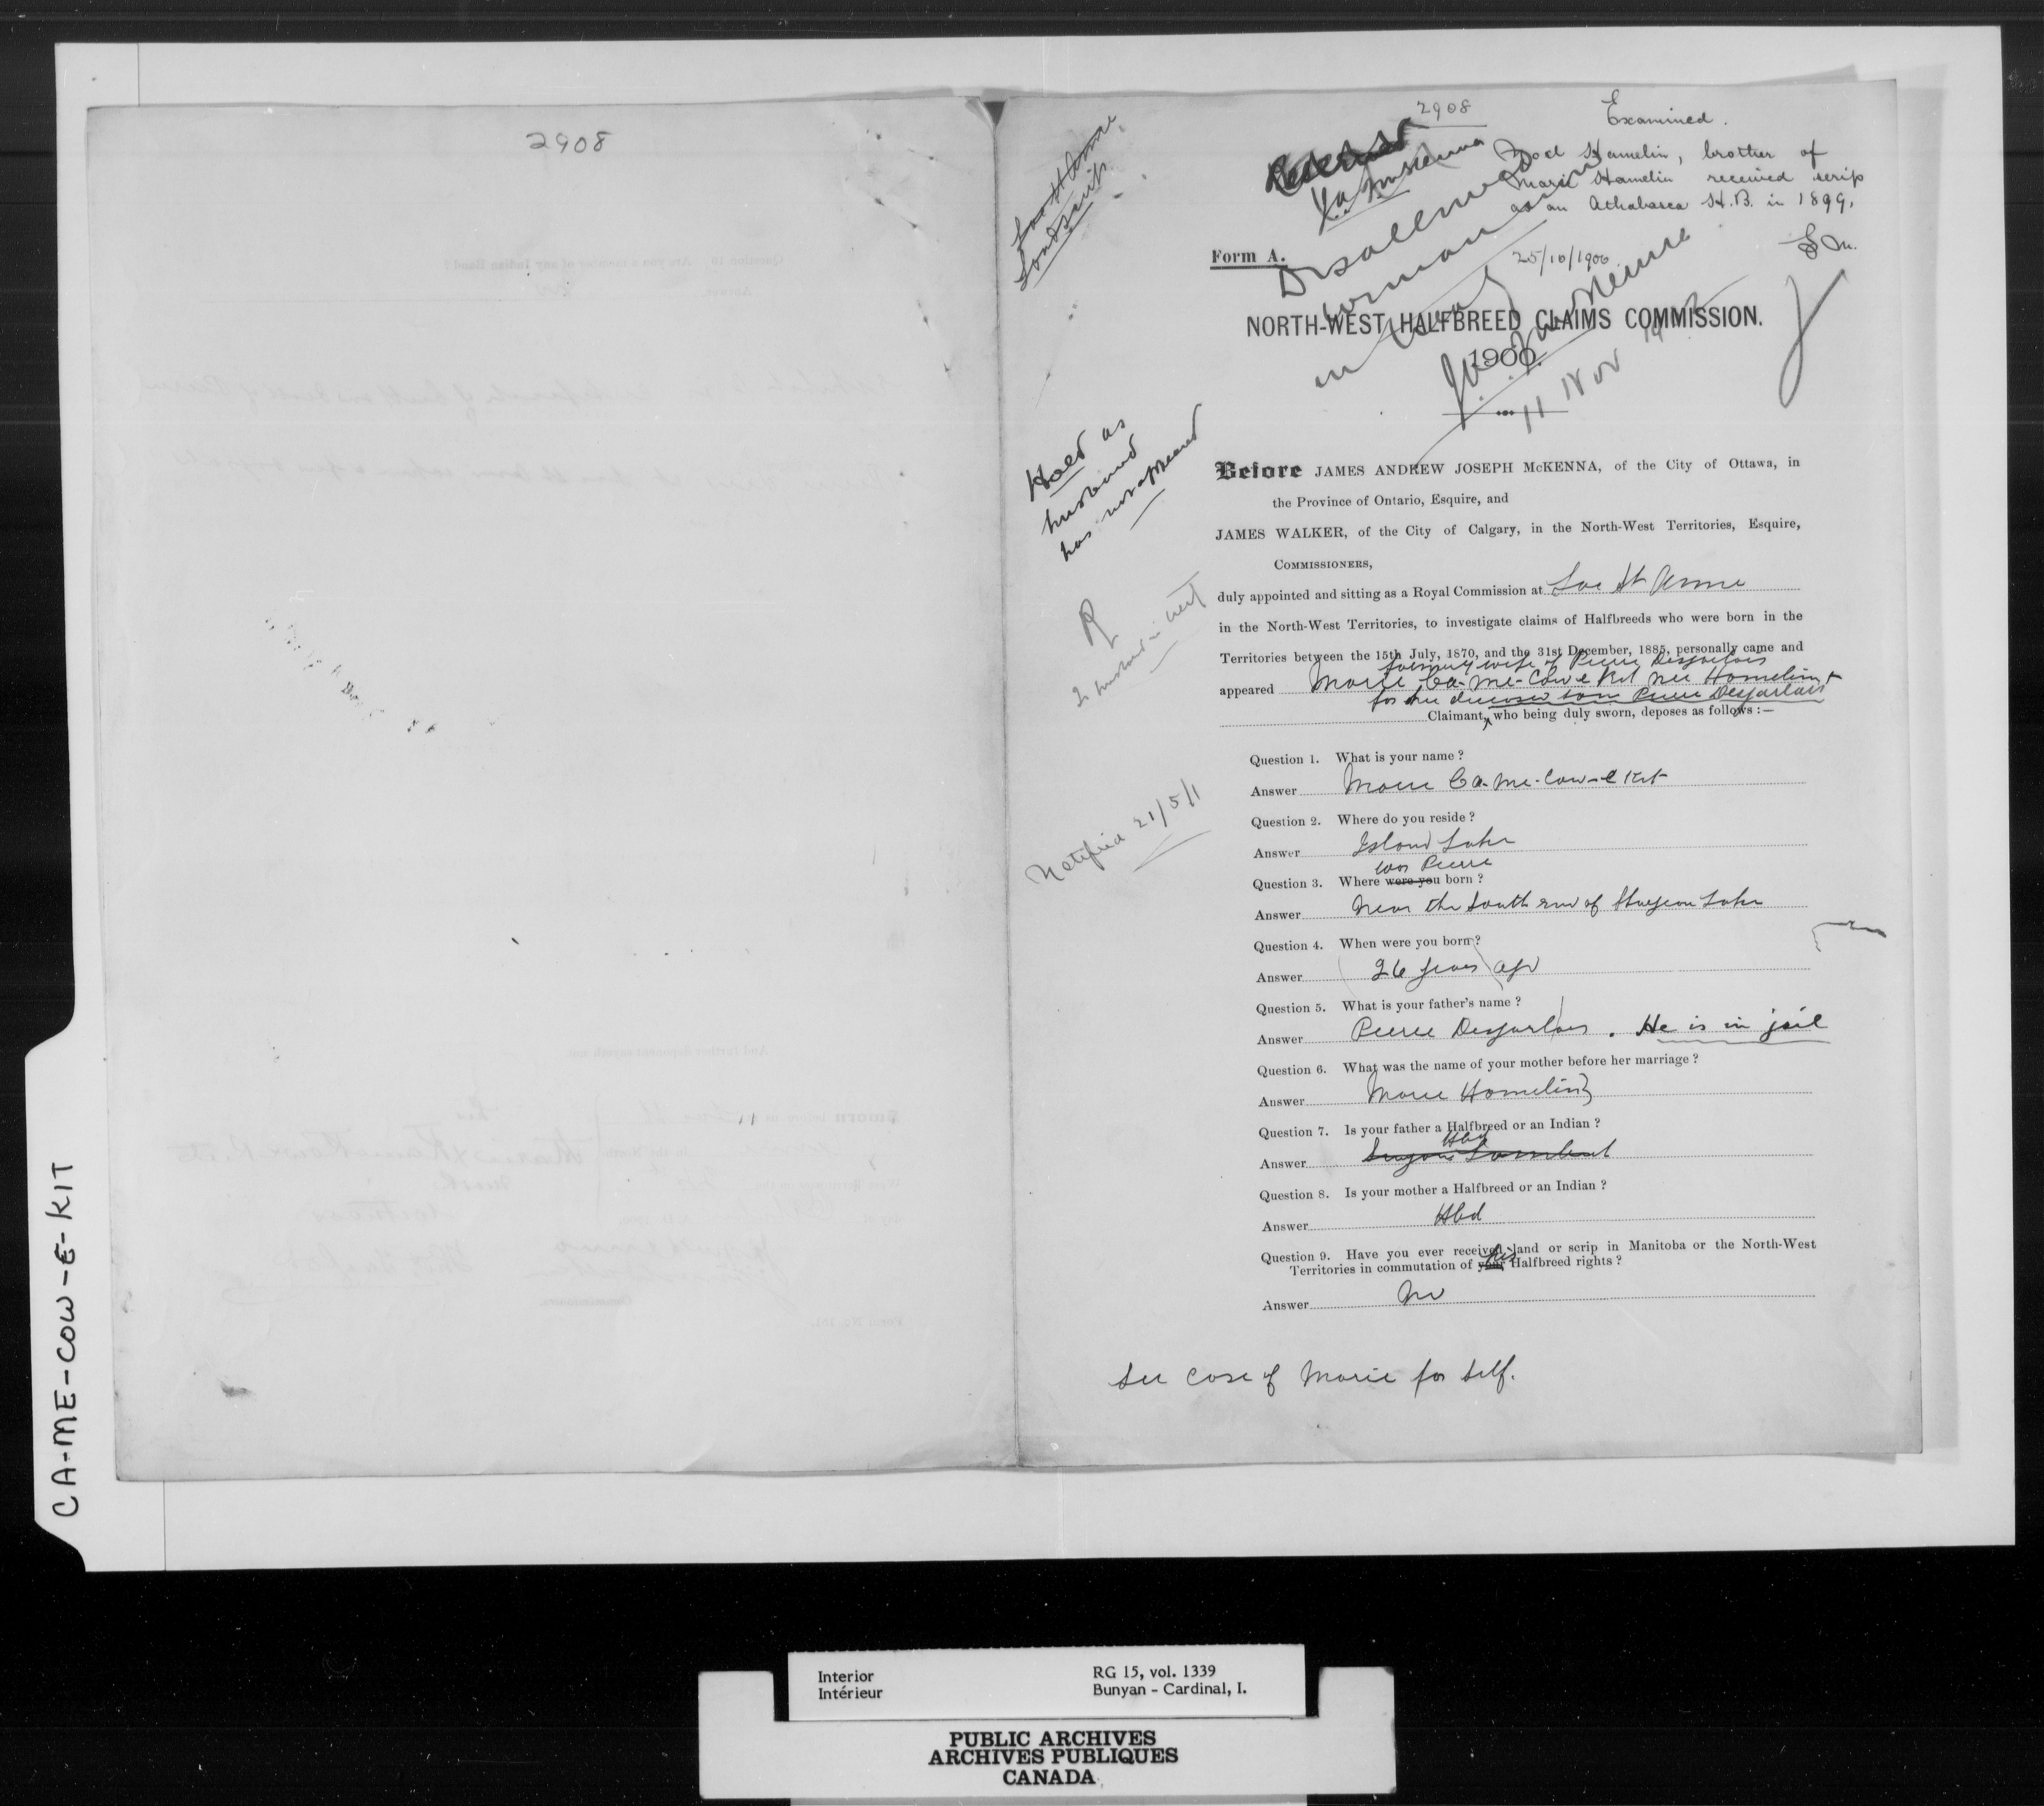 2908
CA-ME-COW-E-KIT
2908
Examined.
Noel Hamelin, brother of
Marie Hamelin received scrip
as an Athabasca H.B. in 1899.
Reserved
J.A. McKenna
Lac St Anne
Land scrip
Form A.
25/10/1900
Disallowed
woman
in Treaty
J.A. McKenna
11 Nov
NORTH-WEST HALFBREED CLAIMS COMMISSION.
1900.
Held as
husband
has not appeared
R
Notified 21/5/1
Before JAMES ANDREW JOSEPH McKENNA, of the City of Ottawa, in
the Province of Ontario, Esquire, and
JAMES WALKER, of the City of Calgary, in the North-West Territories, Esquire,
COMMISSIONERS,
duly appointed and sitting as a Royal Commission at Lac St Anne
in the North-West Territories, to investigate claims of Halfbreeds who were born in the
Territories between the 15th July, 1870, and the 31st December, 1885, personally came and
formerly wife of Pierre Desjarlais
appeared Marie Ca-me-Cow-e Kit nee Hamelin
for her deceased son Pierre Desjarlais
Claimant, who being duly sworn, deposes as follows :—
Question 1. What is your name ?
Answer Marie Ca-me-Cow-e Kit
Question 2. Where do you reside ?
Answer Island Lake
was Pierre
Question 3. Where were you born ?
Answer Near the South end of Sturgeon Lake
Question 4. When were you born ?
Answer 26 years ago
Question 5. What is your father's name ?
Answer Pierre Desjarlais . He is in jail
Question 6. What was the name of your mother before her marriage ?
Answer Marie Hamelin
Question 7. Is your father a Halfbreed or an Indian ?
Hbd
Answer
Question 8. Is your mother a Halfbreed or an Indian ?
Answer Hbd
Question 9. Have you ever received land or scrip in Manitoba or the North-West
his
Territories in commutation of your Halfbreed rights ?
Answer No
See case of Marie for self.
Interior
Intérieur
RG 15, vol. 1339
Bunyan - Cardinal, I.
PUBLIC ARCHIVES
ARCHIVES PUBLIQUES
CANADA